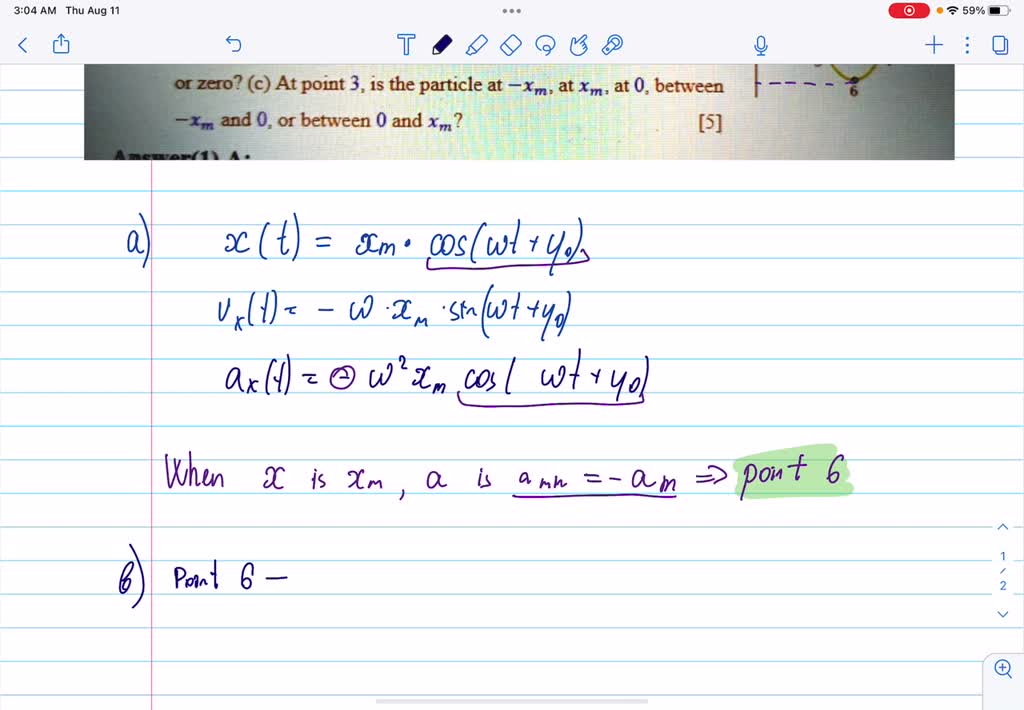 3:04 AM Thu Aug 11
59%
or zero? (c) At point 3, is the particle at −xm, at xm, at 0, between
−xm and 0, or between 0 and xm? [5]
6
Answer(1) A:
a) x(t) = xm · cos(ωt + φ0)
vx(t) = − ω · xm · sin(ωt + φ0)
ax(t) = − ω² xm cos( ωt + φ0)
When x is xm, a is amin = − am ⇒ point 6
b) Point 6 −
1
/
2